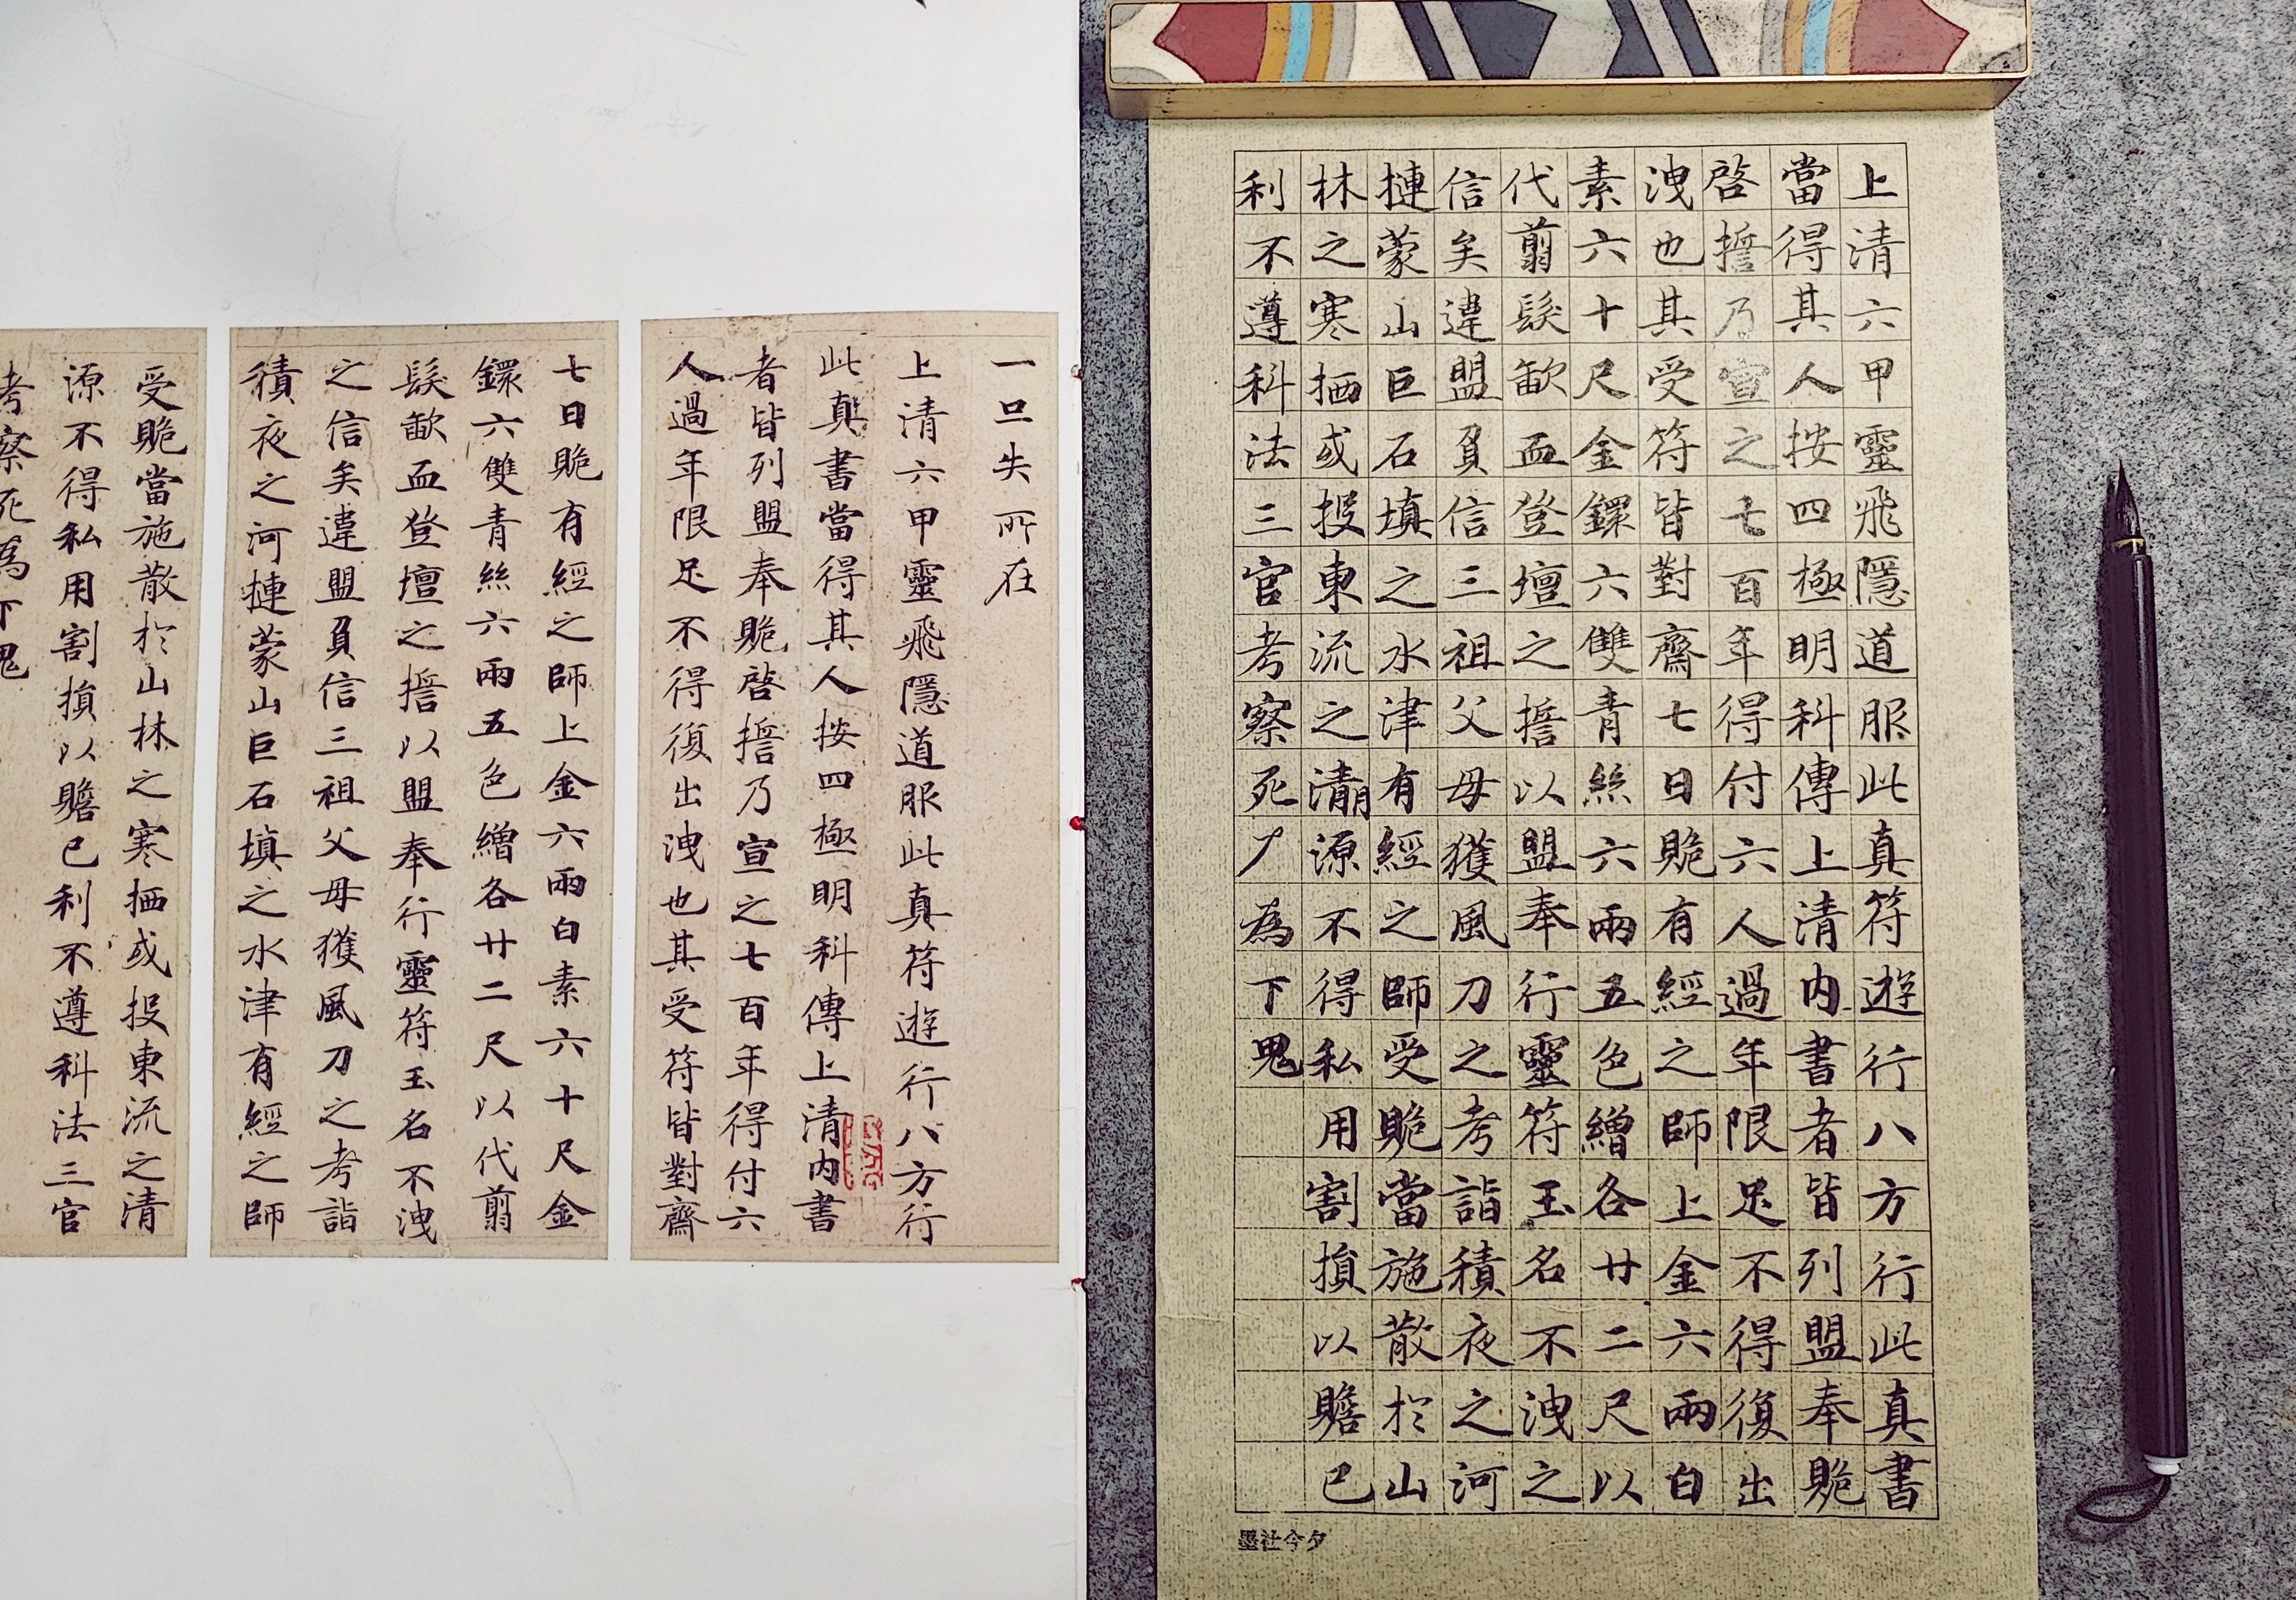 上清六甲靈飛隱道服此真符遊行八方行此真書
當得其人按四極明科傳上清內書者皆列盟奉䝿
啓誓乃宣之七百年得付六人過年限足不得復出
洩也其受符皆對齋七日䝿有經之師上金六兩白
素六十尺金鐶六雙青絲六兩五色繒各廿二尺以
代翦髮歃血登壇之誓以盟奉行靈符玉名不洩之
信矣違盟負信三祖父母獲風刀之考詣積夜之河
摙蒙山巨石填之水津有經之師受䝿當施散於山
林之寒栖或投東流之清源不得私用割損以贍己
利不遵科法三官考察死為下鬼
墨社今夕
一旦失所在
上清六甲靈飛隱道服此真符遊行八方行
此真書當得其人按四極明科傳上清內書
者皆列盟奉䝿啓誓乃宣之七百年得付六
人過年限足不得復出洩也其受符皆對齋
七日䝿有經之師上金六兩白素六十尺金
鐶六雙青絲六兩五色繒各廿二尺以代翦
髮歃血登壇之誓以盟奉行靈符玉名不洩
之信矣違盟負信三祖父母獲風刀之考詣
積夜之河摙蒙山巨石填之水津有經之師
受䝿當施散於山林之寒栖或投東流之清
源不得私用割損以贍己利不遵科法三官
考察死為下鬼